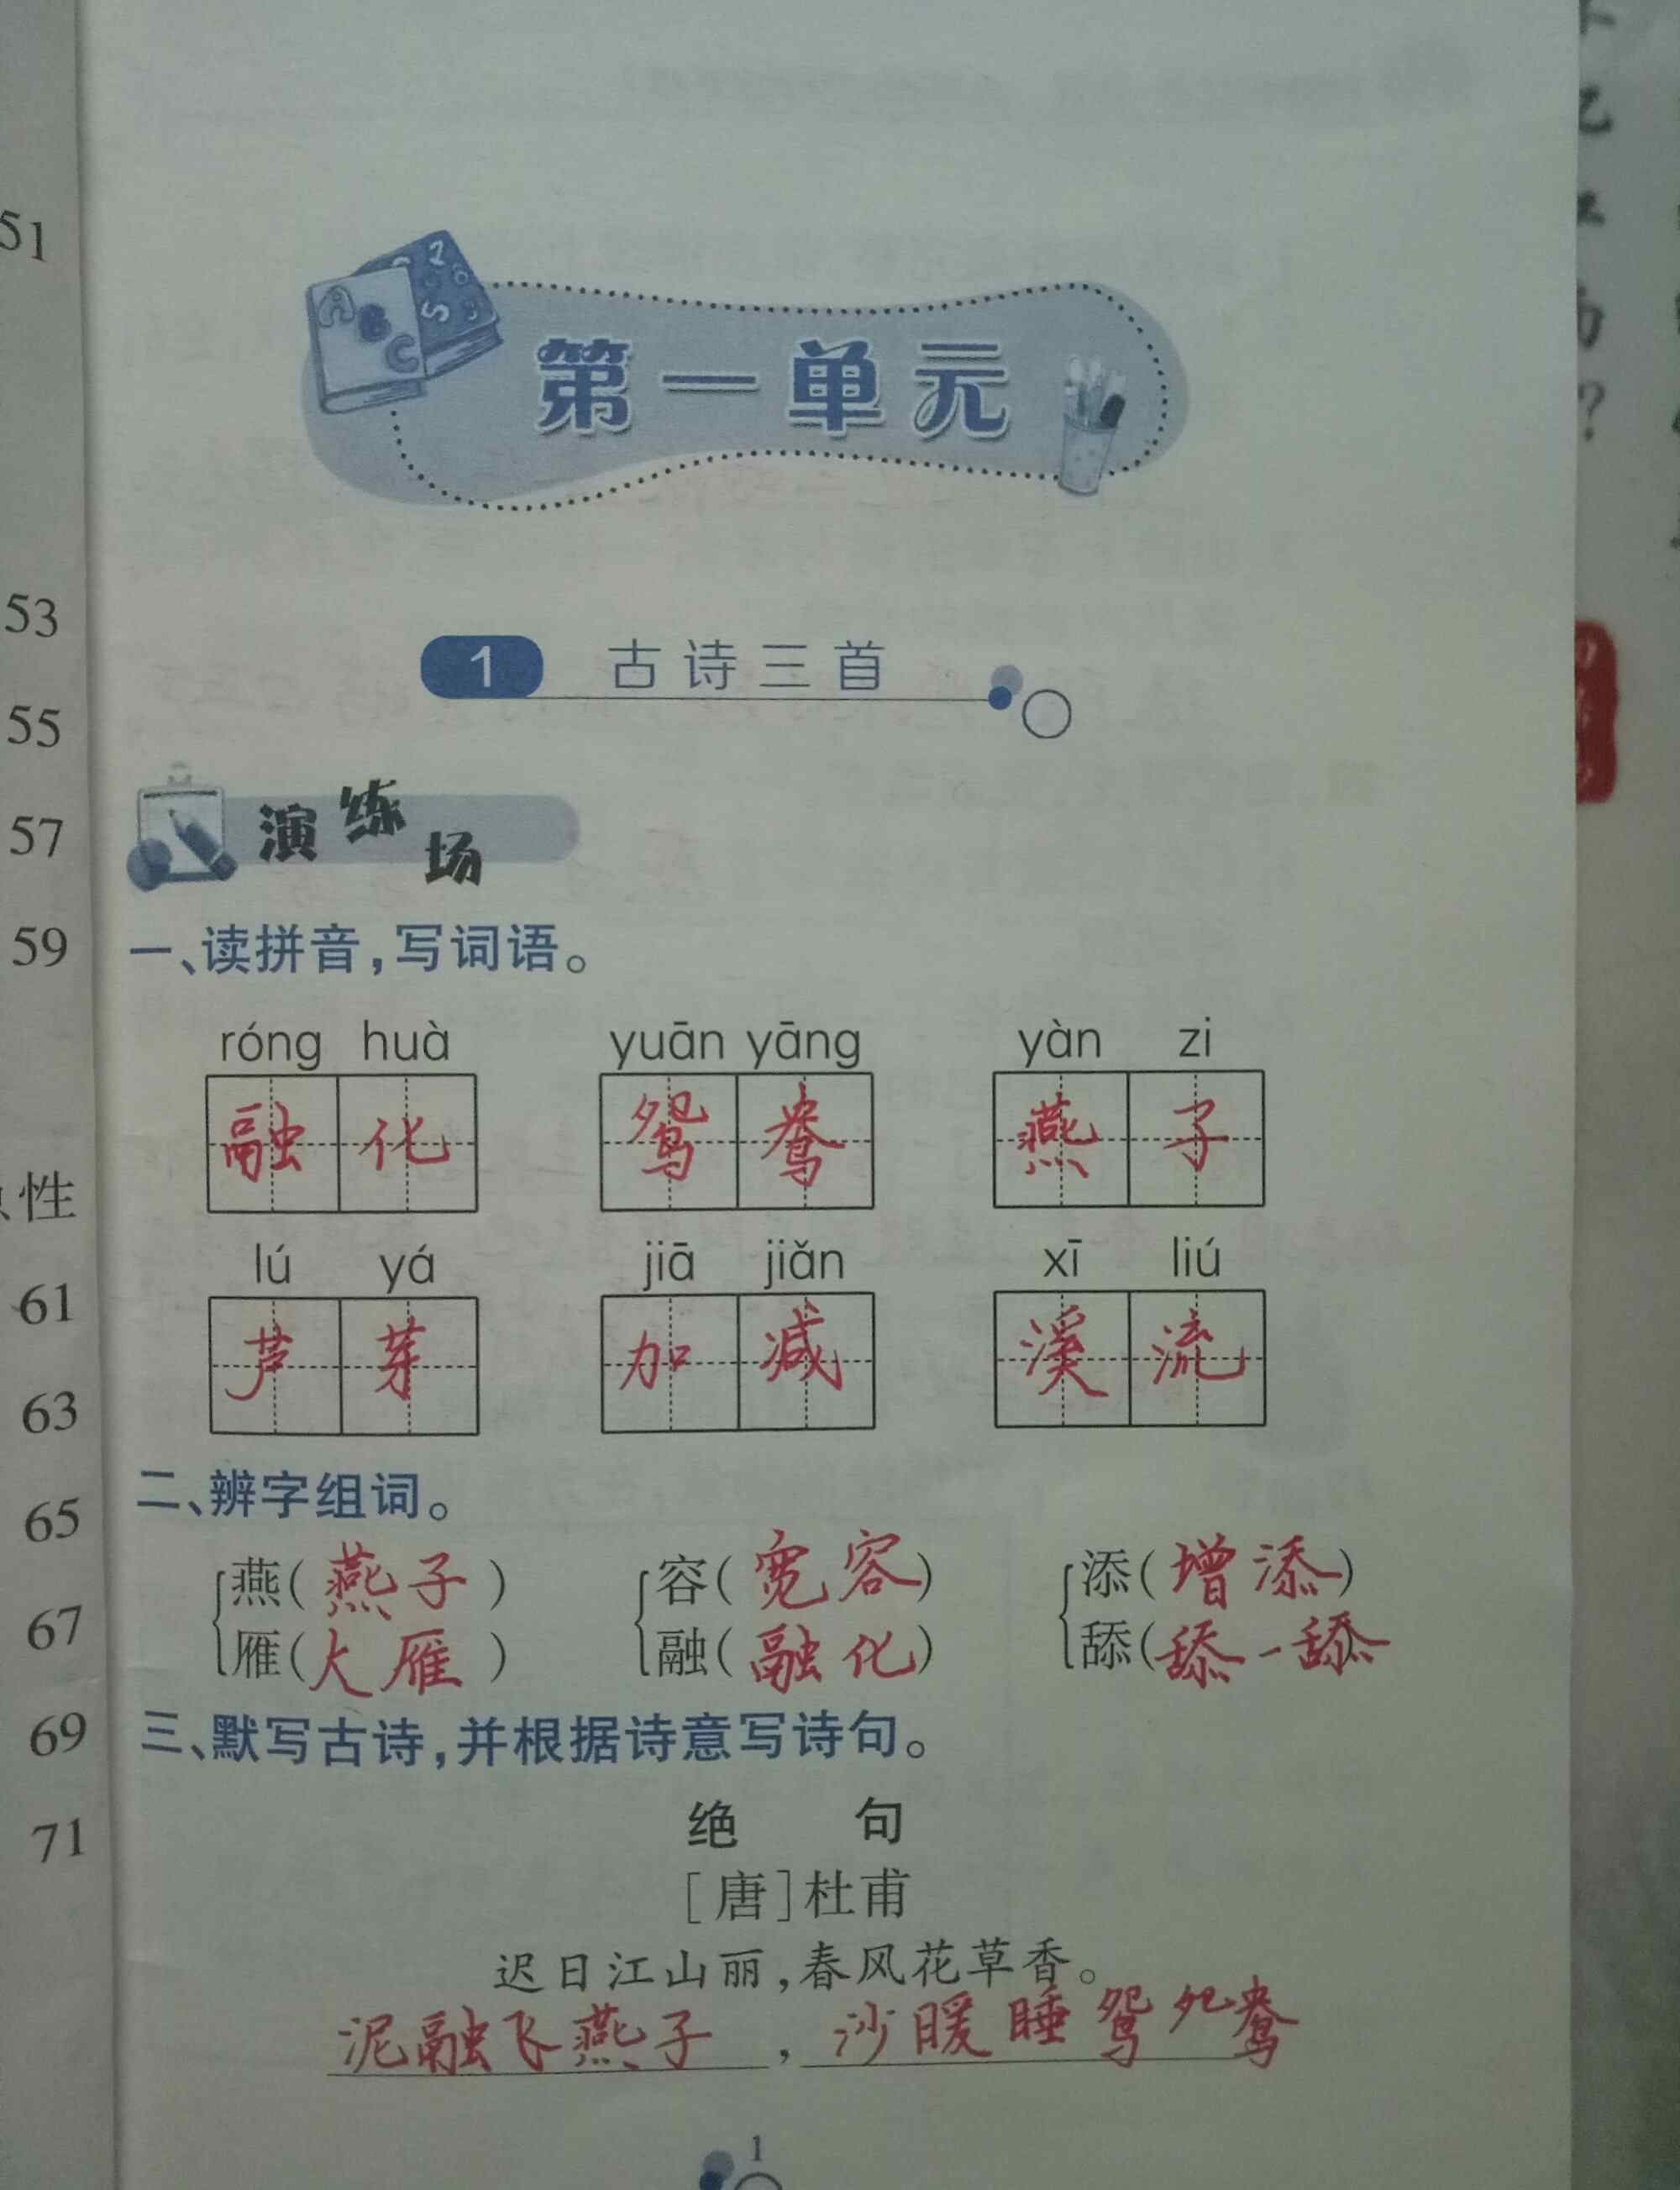 第一单元
1 古诗三首
演练场
一、读拼音,写词语。
róng huà yuān yāng yàn zi
融化 鸳鸯 燕子
lú yá jiā jiǎn xī liú
芦芽 加减 溪流
二、辨字组词。
燕(燕子) 容(宽容) 添(增添)
雁(大雁) 融(融化) 舔(舔一舔
三、默写古诗,并根据诗意写诗句。
绝 句
[唐]杜甫
迟日江山丽,春风花草香。
泥融飞燕子,沙暖睡鸳鸯
1
51
53
55
57
59
性
61
63
65
67
69
71